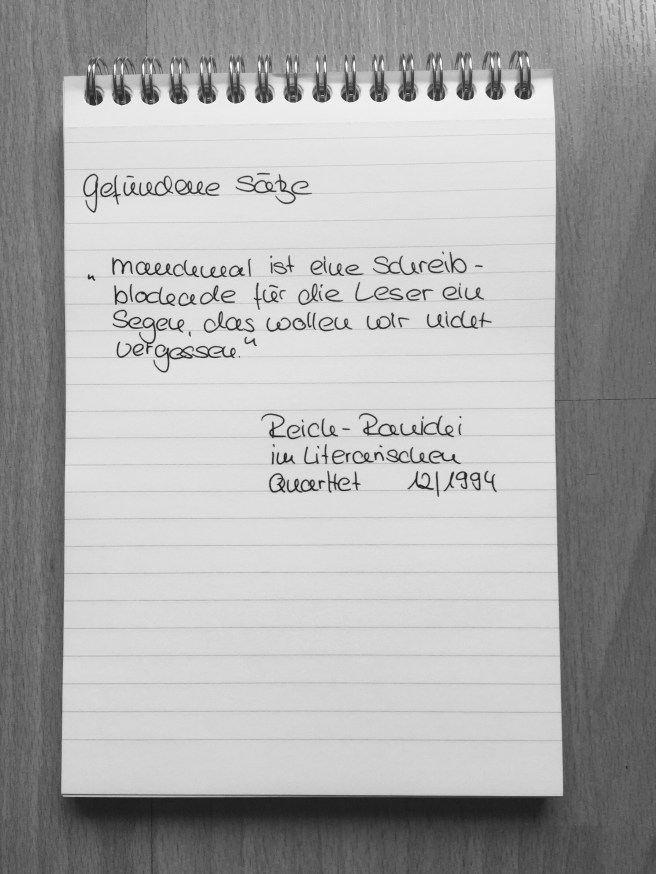 Gefundene Sätze
„Manchmal ist eine Schreib-
blockade für die Leser ein
Segen, das wollen wir nicht
vergessen."
Reich-Ranicki
im Literarischen
Quartett 12/1994